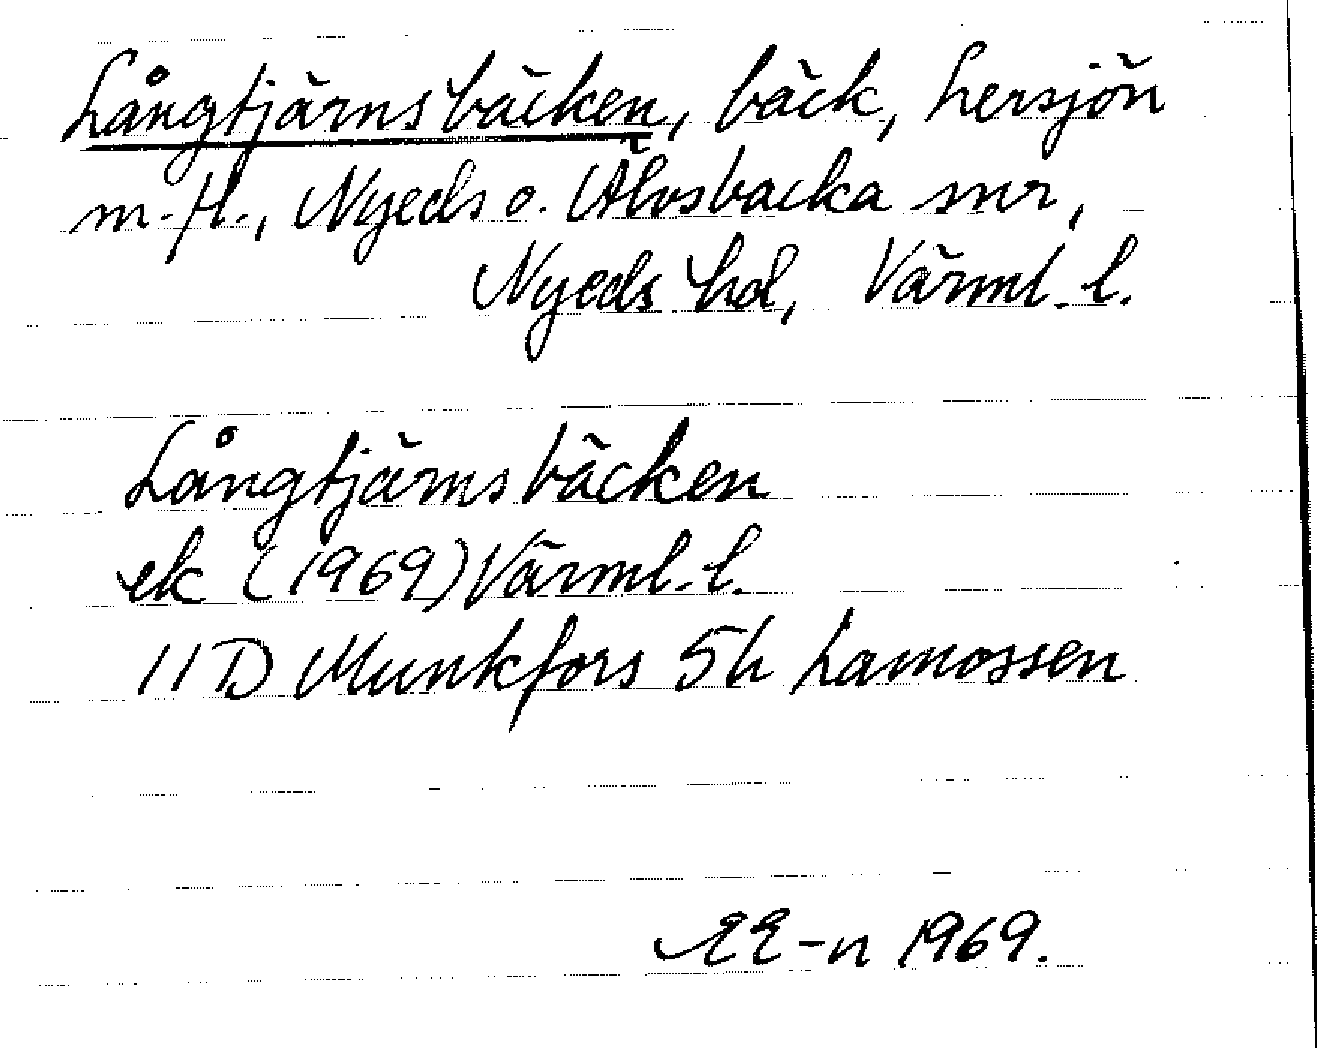 Långtjärnsbäcken, bäck, Lersjön
m.fl., Nyeds o. Älvsbacka snr,
Nyeds hd, Värml. l.
Långtjärnsbäcken
ek (1969) Värml. l.
11D Munkfors 5h Lamossen
EE-n 1969.